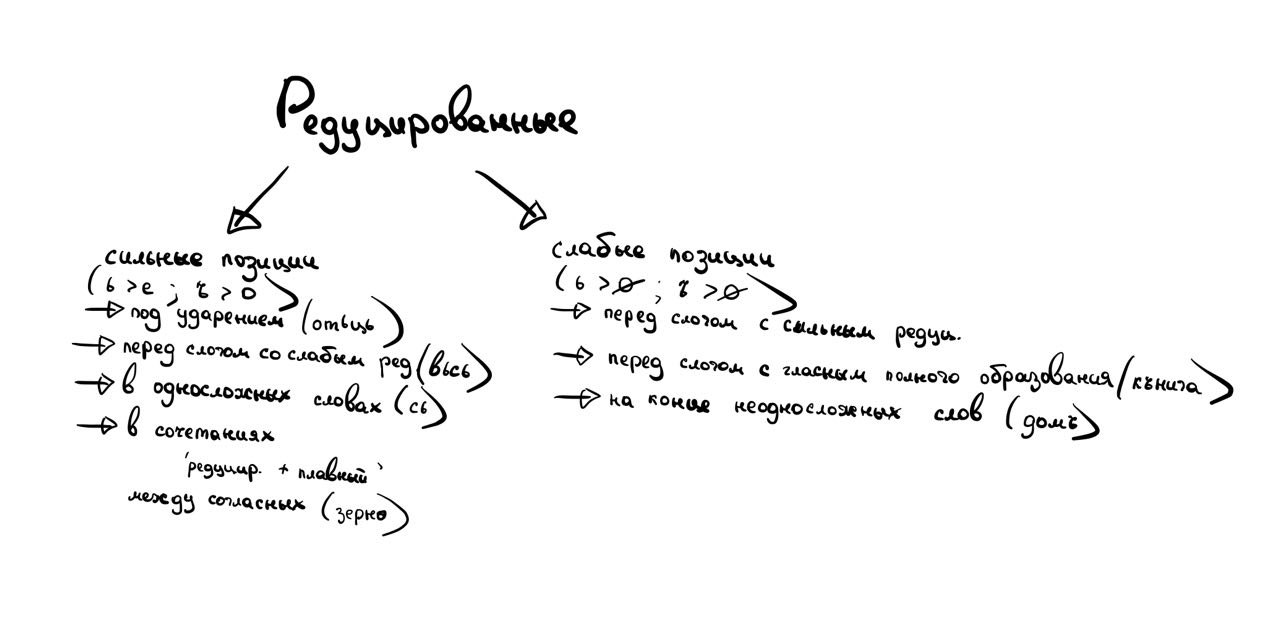 Редуцированные
сильные позиции
(ь > е ; ъ > о)
→ под ударением (отьць)
→ перед слогом со слабым ред (вьсь)
→ в односложных словах (сь)
→ в сочетаниях
'редуцир. + плавный'
между согласных (зерно)
слабые позиции
(ь > ∅ ; ъ > ∅)
→ перед слогом с сильным редуц.
→ перед слогом с гласным полного образования (кънига)
→ на конце неодносложных слов (домъ)